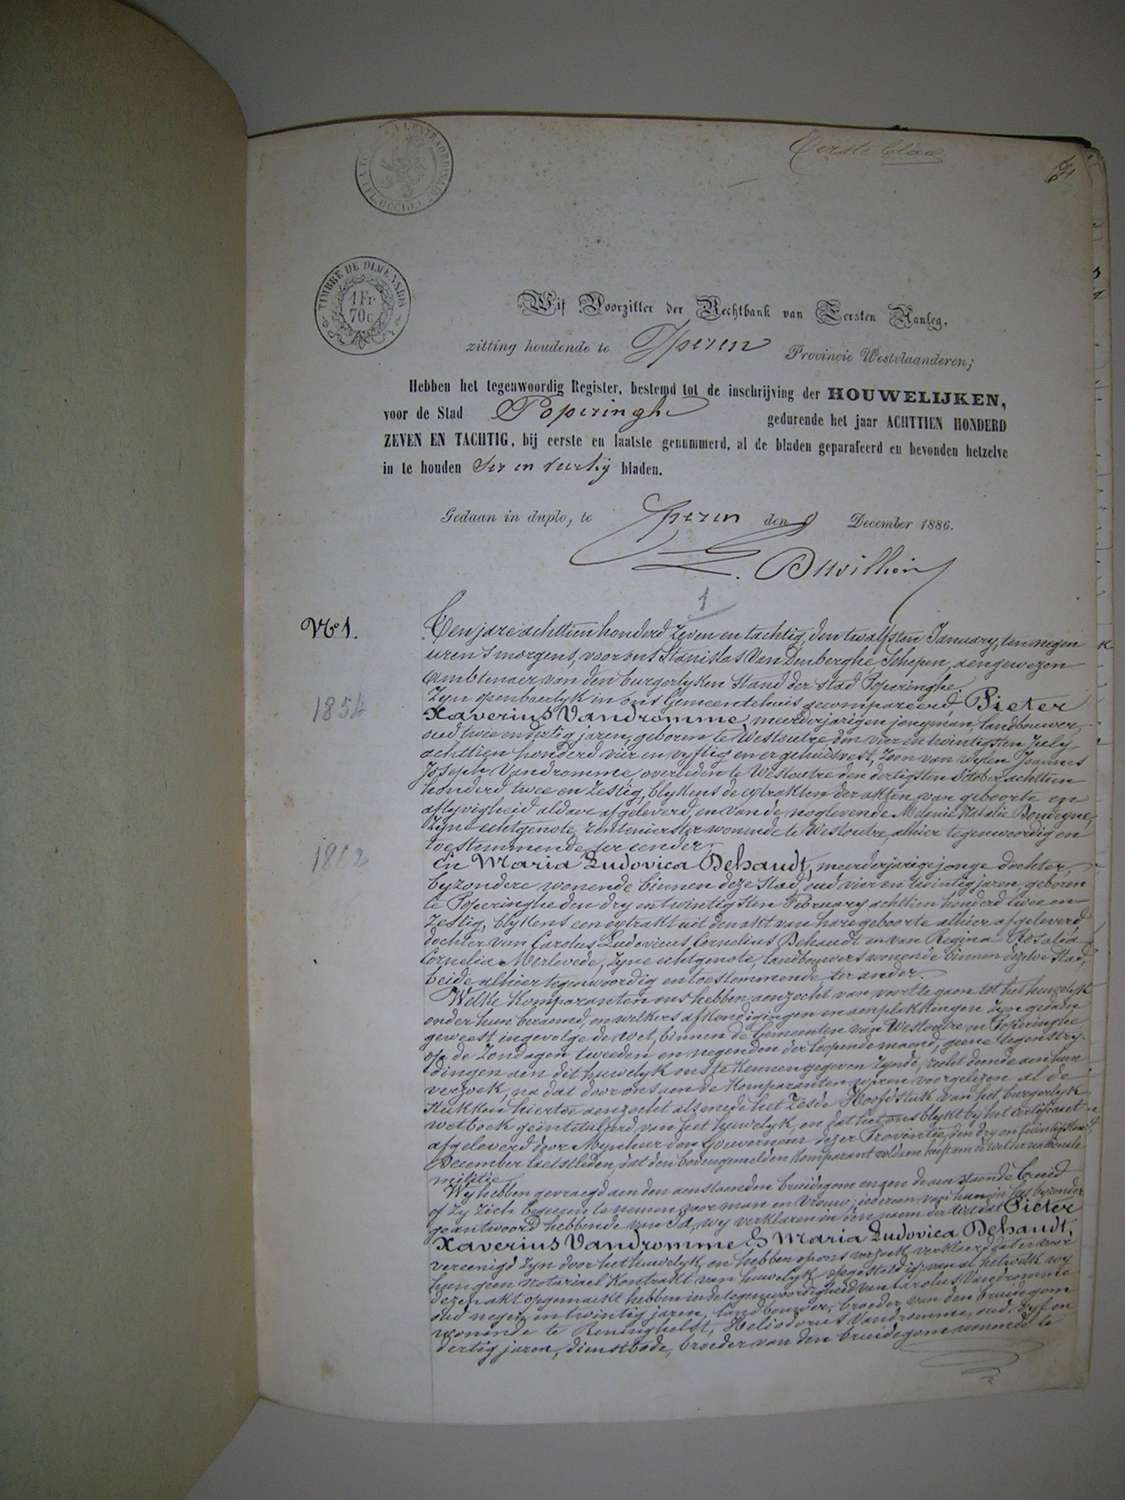 Eerste blad
TIMBRE DE DIMENSION
1 Fr
70 c
Wij Voorzitter der Rechtbank van Eersten Aanleg,
zitting houdende te Yperen Provincie Westvlaanderen;
Hebben het tegenwoordig Register, bestemd tot de inschrijving der HOUWELIJKEN,
voor de Stad Poperinghe gedurende het jaar ACHTTIEN HONDERD
ZEVEN EN TACHTIG, bij eerste en laatste genummerd, al de bladen geparafeerd en bevonden hetzelve
in te houden bladen.
Gedaan in duplo, te Yperen den December 1886.
1
No 1.
Een jare achttien honderd zeven en tachtig, den twalfsten January, ten negen
uren 's morgens, voor ons Stanislas Van Denberghe, Schepen, aengewezen
Ambtenaer van den burgerlyken stand der stad Poperinghe
1854
Zyn openbaerlyk in ons Gemeentehuis gecompareerd, Pieter
Xaverius Vandromme, meerderjarigen jongman, landbouwer,
oud twee en dertig jaren, geboren te Westoutre den vier en twintigsten July
achttien honderd vier en vyftig en er gehuisvest, zoon van wylen Joannes
Joseph Vandromme, overleden te Westoutre den dertigsten October achttien
honderd twee en zestig, blykens de extrakten der akten van geboorte en
aflyvigheid aldaer afgeleverd, en van de noglevende Melanie Natalie Boudegne,
zyne echtgenote, rentenierster wonende te Westoutre, alhier tegenwoordig en
toestemmende ter eender
1862
En Maria Ludovica Dehaudt, meerderjarige jonge dochter,
byzondere wonende binnen deze stad, oud vier en twintig jaren, geboren
te Poperinghe den dry en twintigsten February achttien honderd twee en
zestig, blykens een extrakt uit den akt van hare geboorte alhier afgeleverd
dochter van Carolus Ludovicus Cornelius Dehaudt en van Regina Rosalia
Cornelia Merlevede, zyne echtgenote, landbouwers wonende binnen dezelve stad,
beide alhier tegenwoordig en toestemmende ter ander.
Welke komparanten ons hebben aenzocht van voort te gaen tot het huwelyk
onder hun beraemd, en welkers afkondigingen en aenplakkingen zyn gedaen
geweest ingevolge de wet, binnen de Gemeenten van Westoutre en Poperinghe
op de zondagen tweeden en negenden der loopende maend, geene tegenstry-
dingen aen dit huwelyk ons te kennen gegeven zynde, recht doende aen hun
verzoek, na dat door ons aen de komparanten voorgelezen al de
stukken hiertoe aenzocht alsmede het zesde Hoofdstuk van het burgerlyk
wetboek geintituleerd van het huwelyk, en dat het ons blykt by het certificaet
afgeleverd door Mynheer den Gouverneur dezer Provintie, den dry en twintigsten
December laetstleden, dat den bovengemelden komparant voldaen heeft aen de wet der nationale
militie
Wy hebben gevraegd aen den aenstaenden bruidegom en aen de aenstaende bruid
of zy zich begeeren te nemen voor man en vrouw; iedereen van hun in het byzonder
geantwoord hebbende van Ja, wy verklaren in den naem der wet dat Pieter
Xaverius Vandromme & Maria Ludovica Dehaudt,
vereenigd zyn door het huwelyk, en hebben op ons verzoek verklaerd dat er voor
hun geen notariael kontrakt van huwelyk opgesteld is; van al hetwelk wy
dezen akt opgemaekt hebben in de tegenwoordigheid van Carolus Vandromme
oud negen en twintig jaren, landbouwer, broeder van den bruidegom
wonende te Reninghelst, Heliodorus Vandromme, oud vyf en
dertig jaren, dienstbode, broeder van den bruidegom wonende te